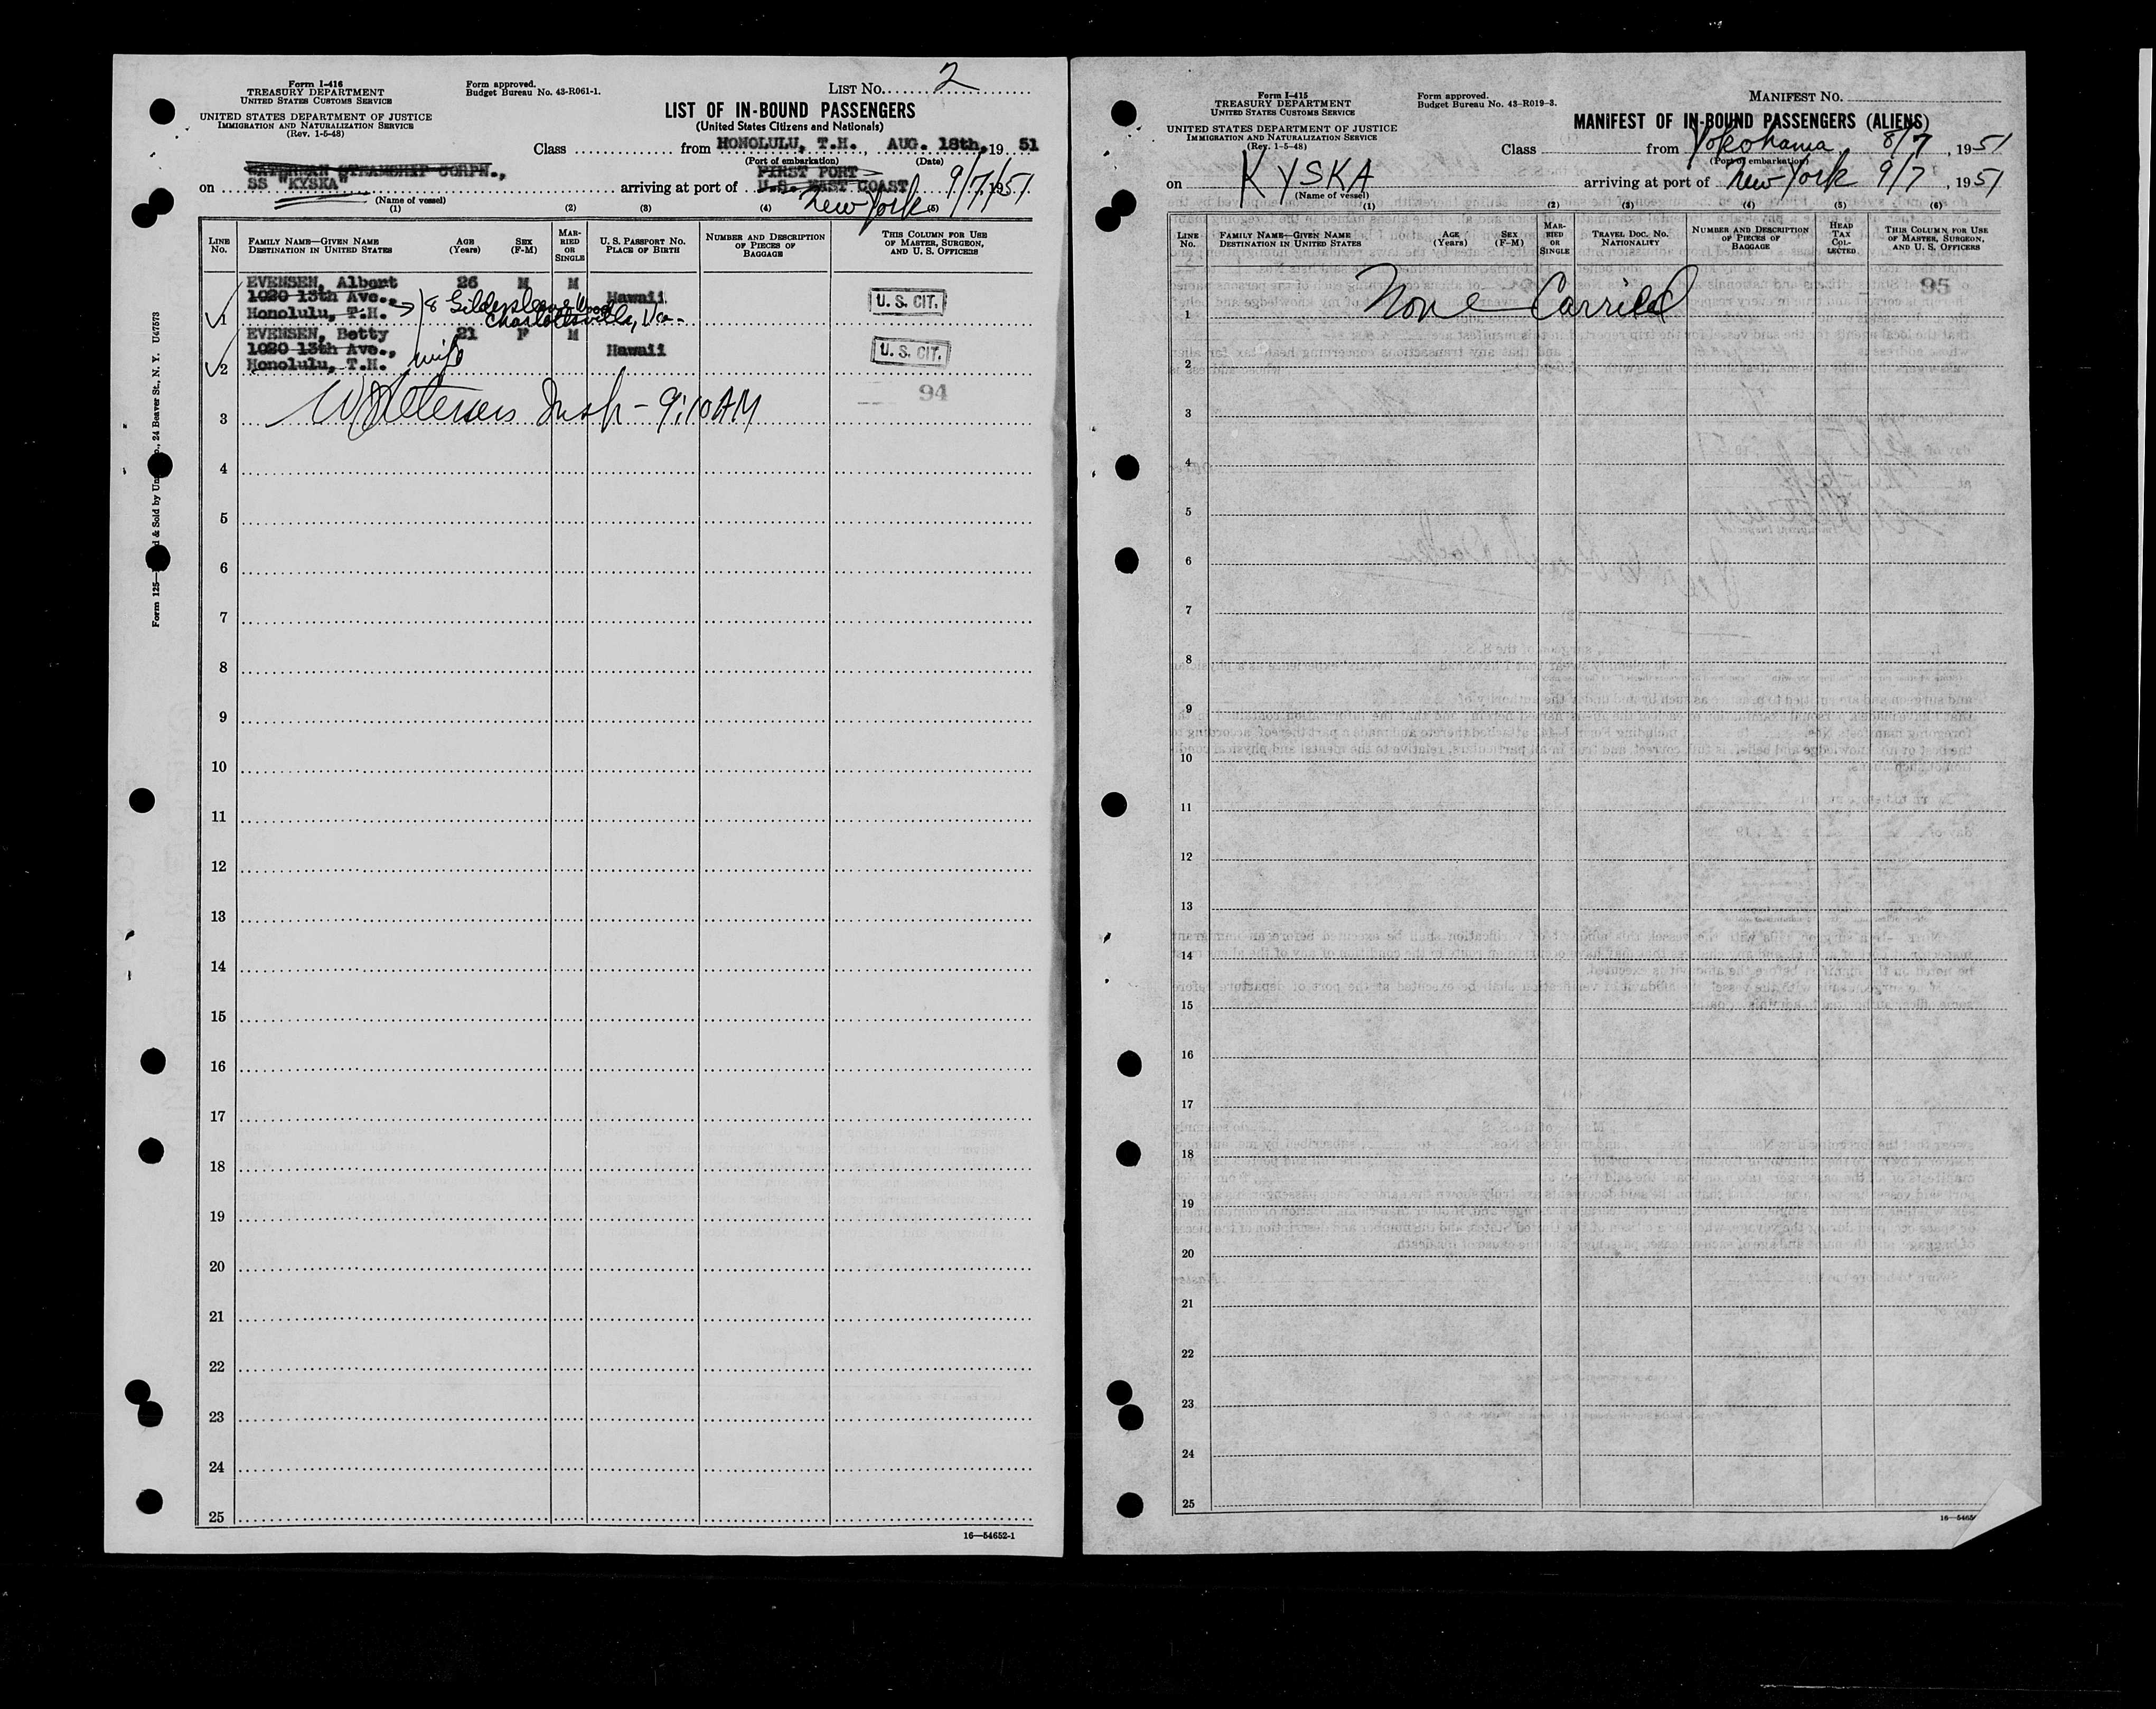 Form I-416
TREASURY DEPARTMENT
UNITED STATES CUSTOMS SERVICE
UNITED STATES DEPARTMENT OF JUSTICE
IMMIGRATION AND NATURALIZATION SERVICE
(Rev. 1-5-48)
Form approved.
Budget Bureau No. 43-R061-1.
LIST No. 2
LIST OF IN-BOUND PASSENGERS
(United States Citizens and Nationals)
Class from HONOLULU, T.H., AUG. 18th, 19 51
(Port of embarkation) (Date)
WATERMAN STEAMSHIP CORPN.,
FIRST PORT
on SS "KYSKA" arriving at port of U.S. EAST COAST 9/7/1951
New York
(Name of vessel)
(1) (2) (3) (4) (5)
LINE No. FAMILY NAME—GIVEN NAME DESTINATION IN UNITED STATES AGE (Years) SEX (F-M) MARRIED OR SINGLE U. S. PASSPORT NO. PLACE OF BIRTH NUMBER AND DESCRIPTION OF PIECES OF BAGGAGE THIS COLUMN FOR USE OF MASTER, SURGEON, AND U. S. OFFICERS
EVENSEN, Albert 26 M M
1020 13th Ave., 8 Gildersleeve Wood Hawaii U. S. CIT.
1 Honolulu, T.H. Charlottesville, Va.
EVENSEN, Betty 21 F M
1020 13th Ave., wife Hawaii U. S. CIT.
2 Honolulu, T.H.
94
3 Insp - 9:10 AM
4
5
6
7
8
9
10
11
12
13
14
15
16
17
18
19
20
21
22
23
24
25
16—54652-1
Form 125— & Sold by 24 Beaver St., N. Y. U47573
Form I-415
TREASURY DEPARTMENT
UNITED STATES CUSTOMS SERVICE
UNITED STATES DEPARTMENT OF JUSTICE
IMMIGRATION AND NATURALIZATION SERVICE
(Rev. 1-5-48)
Form approved.
Budget Bureau No. 43-R019-3.
MANIFEST No.
MANIFEST OF IN-BOUND PASSENGERS (ALIENS)
Class from Yokohama 8/7, 1951
(Port of embarkation)
on KYSKA arriving at port of New York 9/7, 1951
(Name of vessel)
(1) (2) (3) (4) (5) (6)
LINE No. FAMILY NAME—GIVEN NAME DESTINATION IN UNITED STATES AGE (Years) SEX (F-M) MARRIED OR SINGLE TRAVEL DOC. NO. NATIONALITY NUMBER AND DESCRIPTION OF PIECES OF BAGGAGE HEAD TAX COLLECTED THIS COLUMN FOR USE OF MASTER, SURGEON, AND U. S. OFFICERS
95
1 None Carried
2
3
4
5
6
7
8
9
10
11
12
13
14
15
16
17
18
19
20
21
22
23
24
25